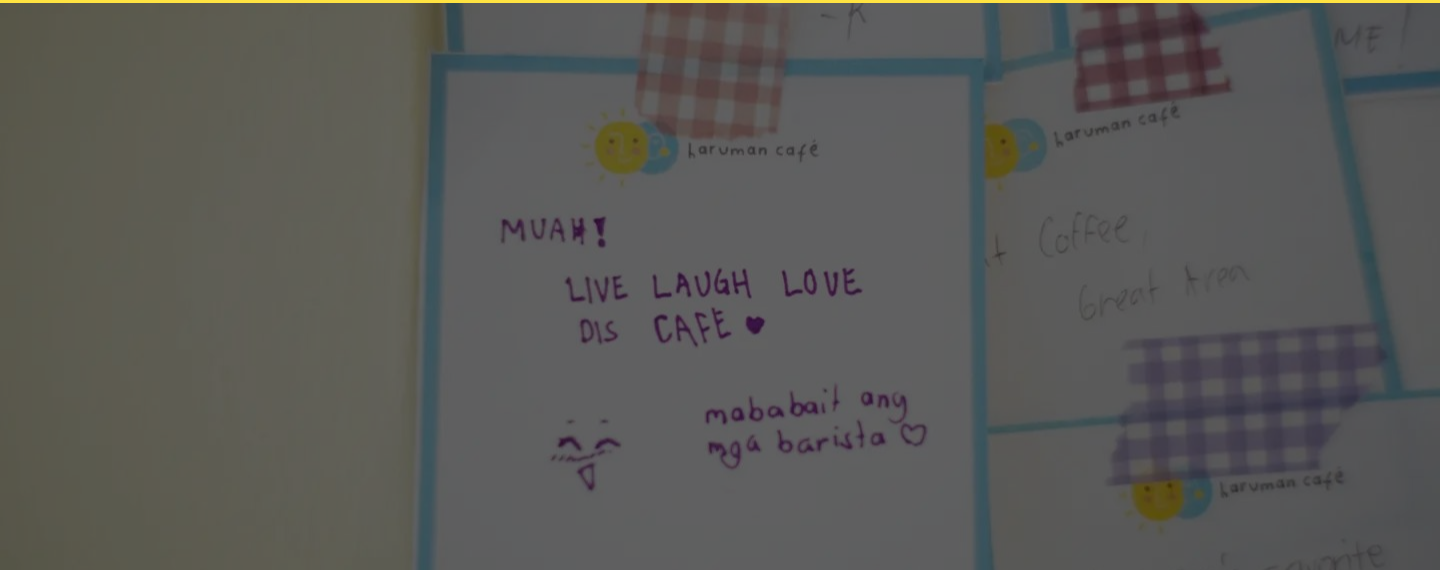 -K
ME!
haruman café
MUAH!
LIVE LAUGH LOVE
DIS CAFE
mababait ang
mga barista
haruman café
Coffee
Great Area
haruman café